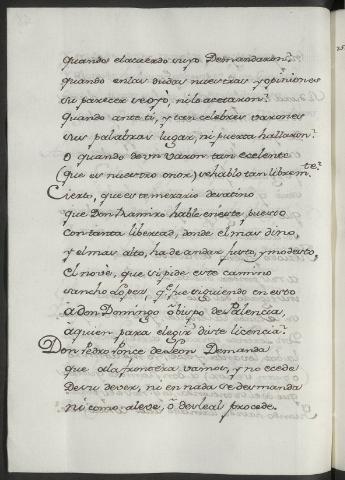 quando el acuerdo suyo Demandaron?
quando en las dudas nuestras, y opiniones
su parecer se oyò, ni lo acetaron?
Quando ante ti, y tan celebres varones
sus palabras lugar, ni puerta hallaron?
O quando de vn varon tan ecelente
(que es nuestro onor) se hablo tan libremte?
Cierto, que es temerario desatino
que Don Ramiro hable en este puesto
con tanta libertad, donde el mas dino,
y el mas alto, ha de andar justo, y modesto,
el no vè, que si pide este camino
sancho Lopez, q̃ fue siguiendo en esto
à don Domingo õbispo de Palencia,
a quien para elegir diste licencia?
Don Pedro Ponce de Leon Demanda
que a la frontera vamos, y no ecede
De su dever, ni en nada se desmanda
ni como aleve, ò desleal procede.